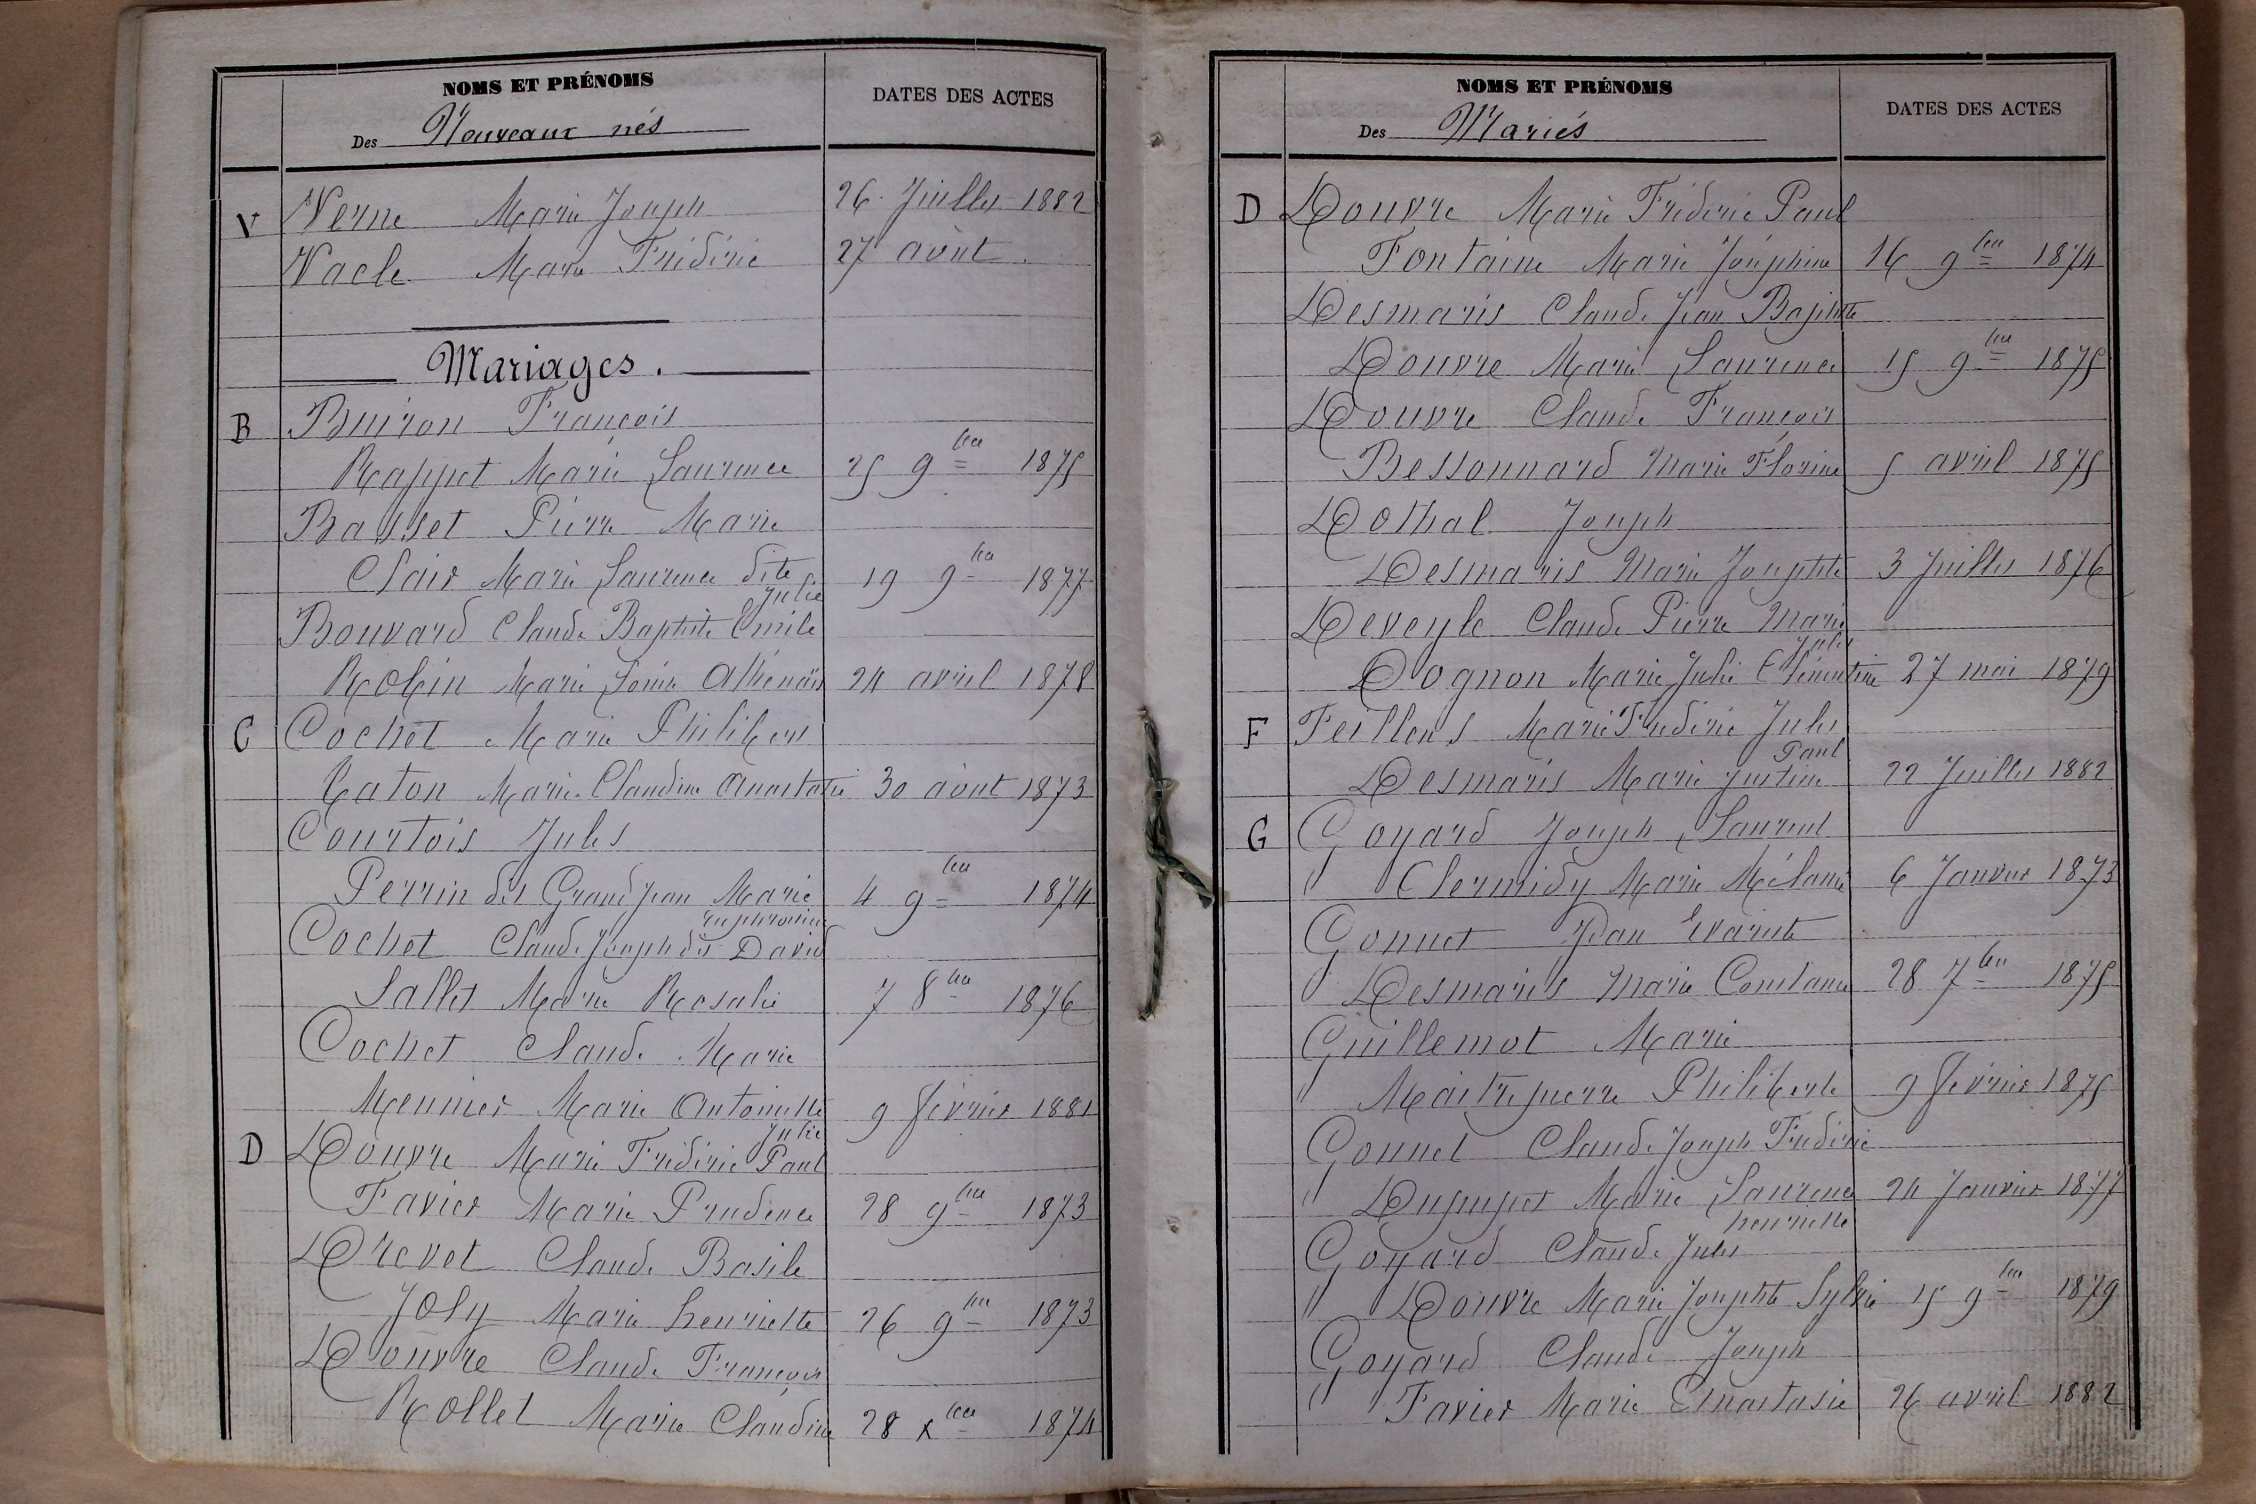 NOMS ET PRÉNOMS
Des Nouveaux nés
DATES DES ACTES
V Verne Marie Joseph 26 Juillet 1882
Vacle Marie Frédéric 27 août
Mariages.
B Buiron François
Rappet Marie Laurence 25 9bre 1875
Basset Pierre Marie
Clair Marie Laurence dite Julie 19 9bre 1877
Bouvard Claude Baptiste Emile
Robin Marie Athénaïs 24 avril 1878
C Cochet Marie Philibert
Caton Marie Claudine Anastasie 30 août 1873
Courtois Jules
Perrin dit Grandjean Marie Euphrosine 4 9bre 1874
Cochet Claude Joseph dit David
Sallet Marie Rosalie 7 8bre 1876
Cochet Claude Marie
Meunier Marie Antoinette Julie 9 février 1881
D Douvre Marie Frédéric Paul
Favier Marie Prudence 28 9bre 1873
Drevet Claude Basile
Joly Marie henriette 26 9bre 1873
Douvre Claude François
Rollet Marie Claudine 28 Xbre 1874
NOMS ET PRÉNOMS
Des Mariés
DATES DES ACTES
D Douvre Marie Fréderic Paul
Fontaine Marie Joséphine 16 9bre 1874
Desmaris Claude Jean Baptiste
Douvre Marie Laurence 15 9bre 1875
Douvre Claude François
Bessonnard Marie Florine 5 avril 1875
Dothal Joseph
Desmaris Marie Josephte 3 Juillet 1876
Deveyle Claude Pierre Marie Jules
Dognon Marie Julie Clémentine 27 mai 1879
F Feillens Marie Frédéric Jules Paul
Desmaris Marie Justine 22 Juillet 1882
G Goyard Joseph Laurent
" Clermidy Marie Mélanie 6 Janvier 1873
Gonnet Jean Evariste
" Desmaris Marie Constance 28 7bre 1875
Guillemot Marie
" Maitrepierre Philiberte 9 février 1875
Gonnet Claude Joseph Frédéric
" Dupupet Marie Laurence henriette 24 Janvier 1877
Goyard Claude Jules
" Douvre Marie Josephte Sylvie 15 9bre 1879
Goyard Claude Joseph
" Favier Marie Anastasie 26 avril 1882